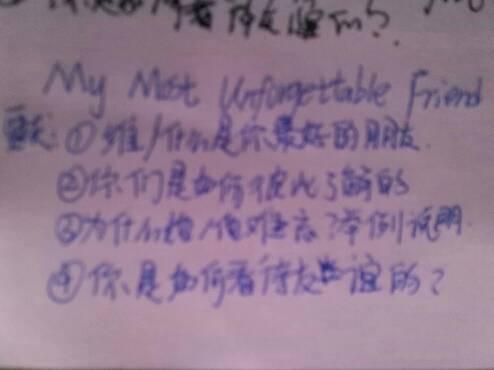 你是如何看待友谊的?
My Most Unforgettable Friend
要求:①谁/什么是你最好的朋友.
②你们是如何彼此了解的
③为什么她/他难忘?举例说明.
④你是如何看待友谊的?